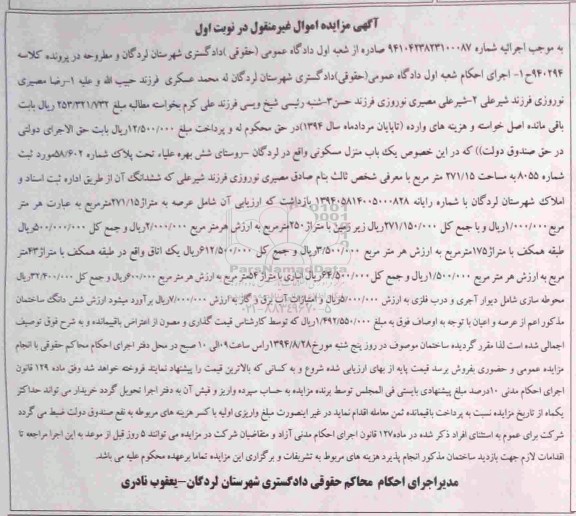 آگهی مزایده اموال غیرمنقول در نوبت اول
به موجب اجرائیه شماره ۹۴۱۰۴۲۳۸۲۳۱۰۰۰۸۷ صادره از شعبه اول دادگاه عمومی (حقوقی )دادگستری شهرستان لردگان و مطروحه در پرونده کلاسه
۹۴۰۲۹۴ح۱- اجرای احکام شعبه اول دادگاه عمومی(حقوقی)دادگستری شهرستان لردگان له محمد عسکری فرزند حبیب الله و علیه ۱-رضا مصیری
نوروزی فرزند شیرعلی ۲-شیرعلی مصیری نوروزی فرزند حسن۳-شنبه رئیسی شیخ ویسی فرزند علی کرم بخواسته مطالبه مبلغ ۲۵۳/۳۲۱/۷۳۲ ریال بابت
باقی مانده اصل خواسته و هزینه های وارده (تاپایان مردادماه سال ۱۳۹۴)در حق محکوم له و پرداخت مبلغ ۱۲/۵۰۰/۰۰۰ریال بابت حق الاجرای دولتی
در حق صندوق دولت)) که در این خصوص یک باب منزل مسکونی واقع در لردگان -روستای شش بهره علیاء تحت پلاک شماره ۵۸/۶۰۲مورد ثبت
شماره ۸۰۵۵ به مساحت ۲۷۱/۱۵ متر مربع با معرفی شخص ثالث بنام صادق مصیری نوروزی فرزند شیرعلی که ششدانگ آن از طریق اداره ثبت اسناد و
املاک شهرستان لردگان با شماره رایانه ۱۳۹۴۰۵۸۱۴۰۰۵۰۰۰۸۲۸ بازداشت که ارزیابی آن شامل عرصه به متراژ۲۷۱/۱۵مترمربع به عبارت هر متر
مربع ۱/۰۰۰/۰۰۰ریال و با جمع کل ۲۷۱/۱۵۰/۰۰۰ ریال زیرزمین با متراژ۲۵۰مترمربع به ارزش هرمتر مربع ۲/۰۰۰/۰۰۰ریال و جمع کل ۵۰۰/۰۰۰/۰۰۰ریال
طبقه همکف با متراژ۱۷۵مترمربع به ارزش هر متر مربع ۳/۵۰۰/۰۰۰ریال و جمع کل ۶۱۲/۵۰۰/۰۰۰ریال یک اتاق واقع در طبقه همکف با متراژ۴۳متر
مربع به ارزش هر متر مربع ۱/۵۰۰/۰۰۰ریال و جمع کل۶۴/۵۰۰/۰۰۰ریال انباری با متراژ ۵۴متر مربع به ارزش هر متر مربع ۶۰۰/۰۰۰ریال و جمع کل ۳۲/۴۰۰/۰۰۰ریال
محوطه سازی شامل دیوار آجری و درب فلزی به ارزش ۵/۰۰۰/۰۰۰ریال و امتیازات آب برق و گاز به ارزش ۷/۰۰۰/۰۰۰ریال برآورد میشود ارزش شش دانگ ساختمان
مذکور اعم از عرصه و اعیان با توجه به اوصاف فوق به مبلغ ۱/۴۹۲/۵۵۰/۰۰۰ریال که توسط کارشناس قیمت گذاری و مصون از اعتراض باقیمانده و به شرح فوق توصیف
اجمالی شده است لذا مقرر گردیده ساختمان موصوف در روز پنج شنبه مورخ۱۳۹۴/۸/۲۸راس ساعت۰۹الی ۱۰ صبح در محل دفتر اجرای احکام محاکم حقوقی با انجام
مزایده عمومی و حضوری بفروش برسد قیمت پایه از بهای ارزیابی شده شروع و به کسانی که بالاترین قیمت را پیشنهاد نمایند فروخته خواهد شد وفق ماده ۱۲۹ قانون
اجرای احکام مدنی ۱۰درصد مبلغ پیشنهادی بایستی فی المجلس توسط برنده مزایده به حساب سپرده واریز و فیش آن به دفتر اجرا تحویل گردد خریدار می تواند حداکثر
یکماه از تاریخ مزایده نسبت به پرداخت باقیمانده ثمن معامله اقدام نماید در غیر اینصورت مبلغ واریزی اولیه با کسر هزینه های مربوطه به نفع صندوق دولت ضبط می گردد
شرکت برای عموم به استثنای افراد ذکر شده در ماده۱۲۷ قانون اجرای احکام مدنی آزاد و متقاضیان شرکت در مزایده می توانند ۵ روز قبل از موعد به این اجرا مراجعه تا
اقدامات لازم جهت بازدید ساختمان مذکور انجام پذیرد هزینه های مربوط به تشریفات و برگزاری این مزایده تماما برعهده محکوم علیه می باشد.
مدیراجرای احکام محاکم حقوقی دادگستری شهرستان لردگان-یعقوب نادری